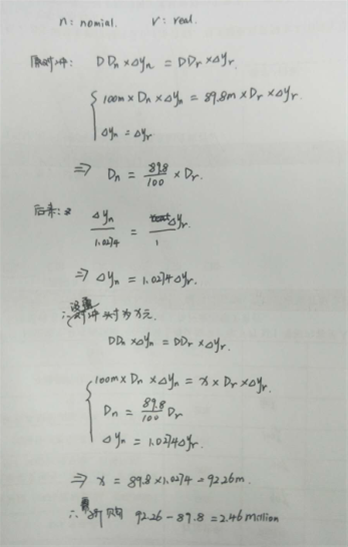 n: nomial. r: real.
原对冲: DDn × ΔYn = DDr × ΔYr.
100m × Dn × ΔYn = 89.8m × Dr × ΔYr.
ΔYn = ΔYr
⇒ Dn = 89.8/100 × Dr.
后来:
ΔYn/1.0274 = ΔYr/1
⇒ ΔYn = 1.0274ΔYr.
∴ 设重对冲为x元.
DDn × ΔYn = DDr × ΔYr.
100m × Dn × ΔYn = x × Dr × ΔYr.
Dn = 89.8/100 Dr
ΔYn = 1.0274ΔYr.
⇒ x = 89.8 × 1.0274 = 92.26m.
∴ 92.26 - 89.8 = 2.46 million